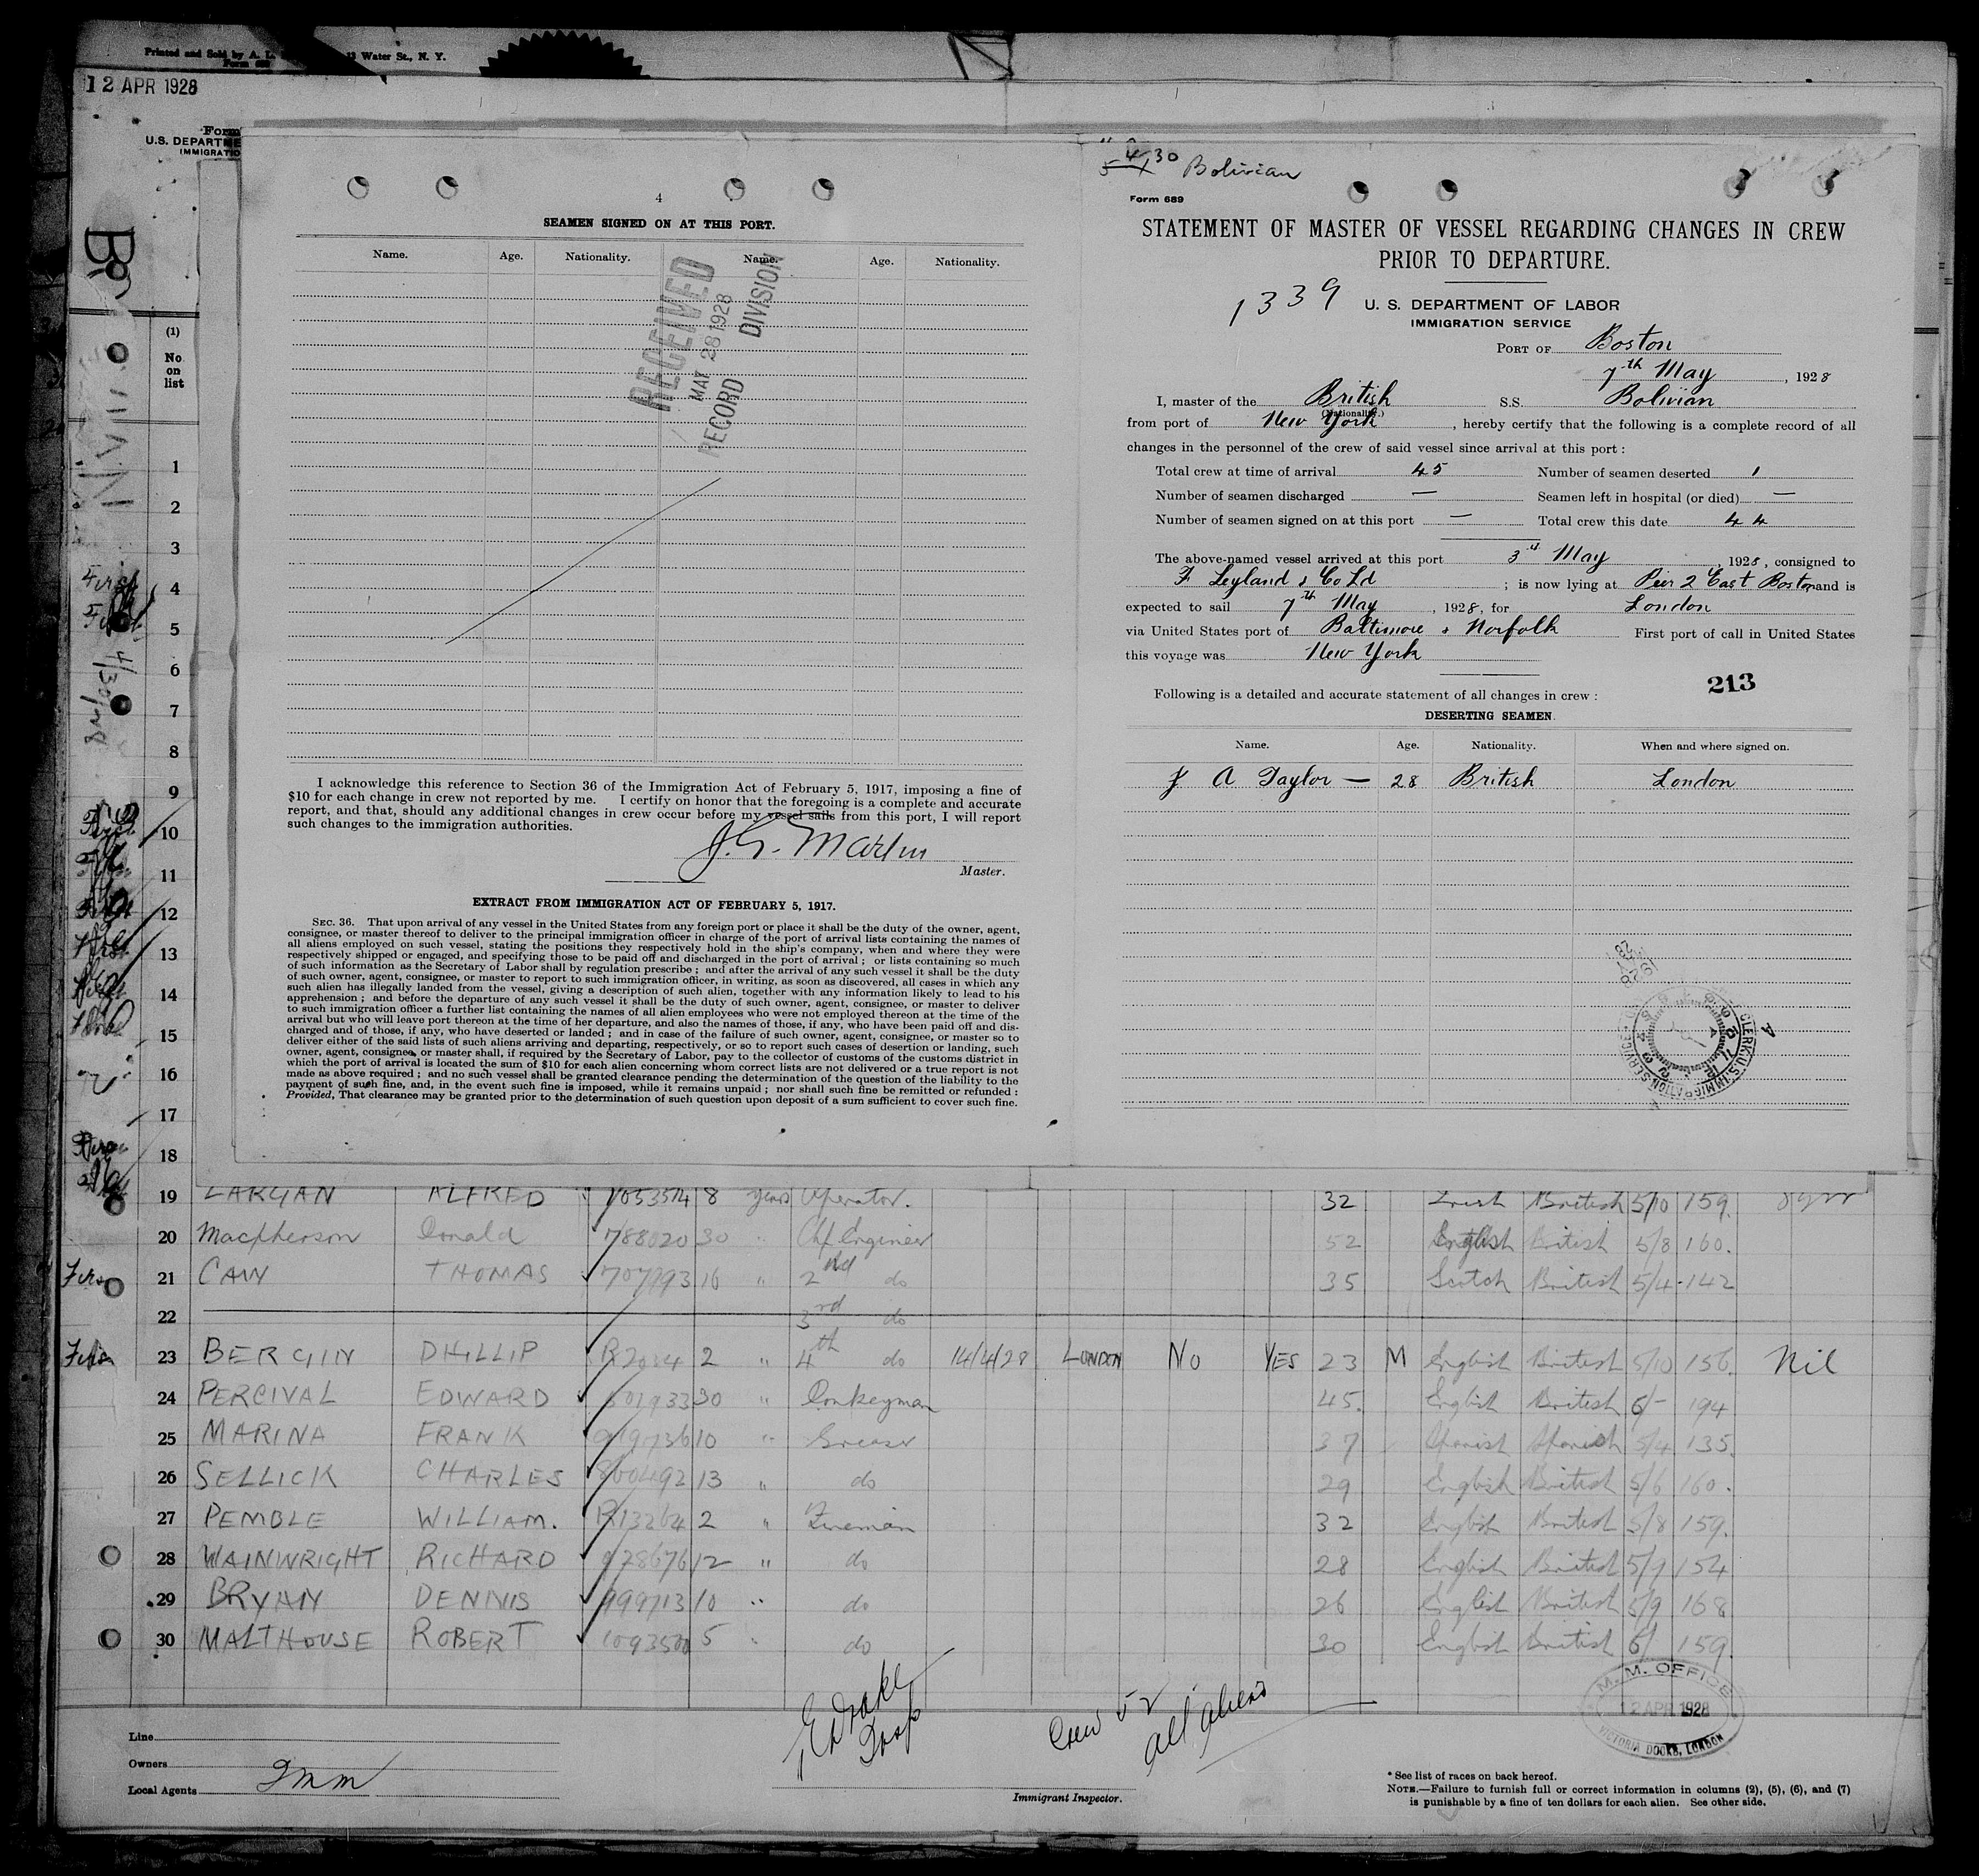 Printed and Sold by A. L. 13 Water St., N. Y.
12 APR 1928
Form
U.S. DEPARTME
IMMIGRATIO
(1)
No
on
list
4
SEAMEN SIGNED ON AT THIS PORT.
Name. Age. Nationality. Name. Age. Nationality.
RECEIVED
MAY 28 1928
RECORD DIVISION
I acknowledge this reference to Section 36 of the Immigration Act of February 5, 1917, imposing a fine of
$10 for each change in crew not reported by me. I certify on honor that the foregoing is a complete and accurate
report, and that, should any additional changes in crew occur before my vessel sails from this port, I will report
such changes to the immigration authorities.
J. G. Martin
Master.
EXTRACT FROM IMMIGRATION ACT OF FEBRUARY 5, 1917.
SEC. 36. That upon arrival of any vessel in the United States from any foreign port or place it shall be the duty of the owner, agent,
consignee, or master thereof to deliver to the principal immigration officer in charge of the port of arrival lists containing the names of
all aliens employed on such vessel, stating the positions they respectively hold in the ship's company, when and where they were
respectively shipped or engaged, and specifying those to be paid off and discharged in the port of arrival; or lists containing so much
of such information as the Secretary of Labor shall by regulation prescribe; and after the arrival of any such vessel it shall be the duty
of such owner, agent, consignee, or master to report to such immigration officer, in writing, as soon as discovered, all cases in which any
such alien has illegally landed from the vessel, giving a description of such alien, together with any information likely to lead to his
apprehension; and before the departure of any such vessel it shall be the duty of such owner, agent, consignee, or master to deliver
to such immigration officer a further list containing the names of all alien employees who were not employed thereon at the time of the
arrival but who will leave port thereon at the time of her departure, and also the names of those, if any, who have been paid off and dis-
charged and of those, if any, who have deserted or landed; and in case of the failure of such owner, agent, consignee, or master so to
deliver either of the said lists of such aliens arriving and departing, respectively, or so to report such cases of desertion or landing, such
owner, agent, consignee, or master shall, if required by the Secretary of Labor, pay to the collector of customs of the customs district in
which the port of arrival is located the sum of $10 for each alien concerning whom correct lists are not delivered or a true report is not
made as above required; and no such vessel shall be granted clearance pending the determination of the question of the liability to the
payment of such fine, and, in the event such fine is imposed, while it remains unpaid; nor shall such fine be remitted or refunded:
Provided, That clearance may be granted prior to the determination of such question upon deposit of a sum sufficient to cover such fine.
30 Bolivian
Form 689
STATEMENT OF MASTER OF VESSEL REGARDING CHANGES IN CREW
PRIOR TO DEPARTURE.
1339 U. S. DEPARTMENT OF LABOR
IMMIGRATION SERVICE
PORT OF Boston
7th May, 1928
I, master of the British S.S. Bolivian
(Nationality.)
from port of New York, hereby certify that the following is a complete record of all
changes in the personnel of the crew of said vessel since arrival at this port:
Total crew at time of arrival 45 Number of seamen deserted 1
Number of seamen discharged — Seamen left in hospital (or died) —
Number of seamen signed on at this port — Total crew this date 44
The above-named vessel arrived at this port 3rd May, 1928, consigned to
F Leyland & Co Ld; is now lying at Pier 2 East Boston and is
expected to sail 7th May, 1928, for London
via United States port of Baltimore & Norfolk First port of call in United States
this voyage was New York
213
Following is a detailed and accurate statement of all changes in crew:
DESERTING SEAMEN.
Name. Age. Nationality. When and where signed on.
J A Taylor — 28 British London
CLERK U.S. IMMIGRATION SERVICE
1
2
3
4
5
6
7
8
9
10
11
12
13
14
15
16
17
18
19 LARGAN ALFRED 1053514 8 years Operator. 32 Irish British 5/10 159.
20 Macpherson Donald 788020 30 " Chf Engineer 52 English British 5/8 160.
21 CAW THOMAS 707993 16 " 2nd do 35 Scotch British 5/4 142
22 3rd do
23 BERGIN PHILLIP R2034 2 " 4th do 14/4/28 LONDON No YES 23 M English British 5/10 156. Nil
24 PERCIVAL EDWARD 601933 30 " Donkeyman 45. English British 6/- 194
25 MARINA FRANK 919736 10 " Greaser 37 Spanish Spanish 5/4 135.
26 SELLICK CHARLES 860492 13 " do 29 English British 5/6 160.
27 PEMBLE WILLIAM. R13264 2 " Fireman 32 English British 5/8 159.
28 WAINWRIGHT RICHARD 978676 12 " do 28 English British 5/9 154
29 BRYAN DENNIS 999713 10 " do 26 English British 5/9 168
30 MALTHOUSE ROBERT 1093500 5 " do 30 English British 6/ 159.
E Drake
Insp
Crew 52
All Aliens
M. M. OFFICE
12 APR 1928
VICTORIA DOCKS, LONDON
Line
Owners
Local Agents Imm
Immigrant Inspector.
* See list of races on back hereof.
NOTE.—Failure to furnish full or correct information in columns (2), (5), (6), and (7)
is punishable by a fine of ten dollars for each alien. See other side.